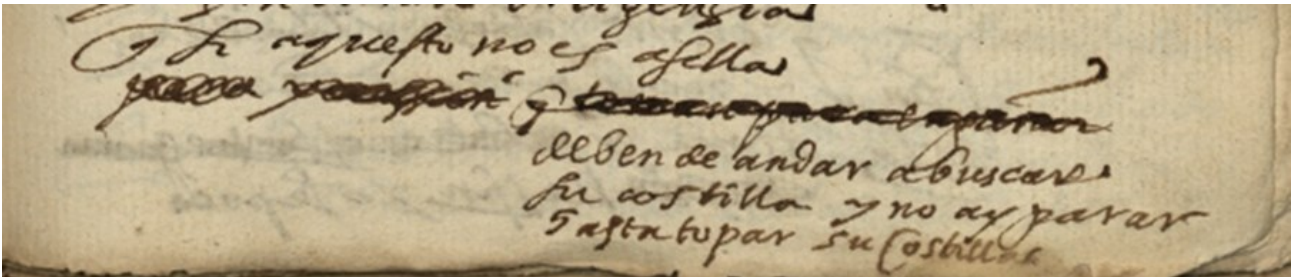 q Si aquesto no es asella
q
deben de andar a buscar
su costilla y no ay parar
asta topar su Costilla